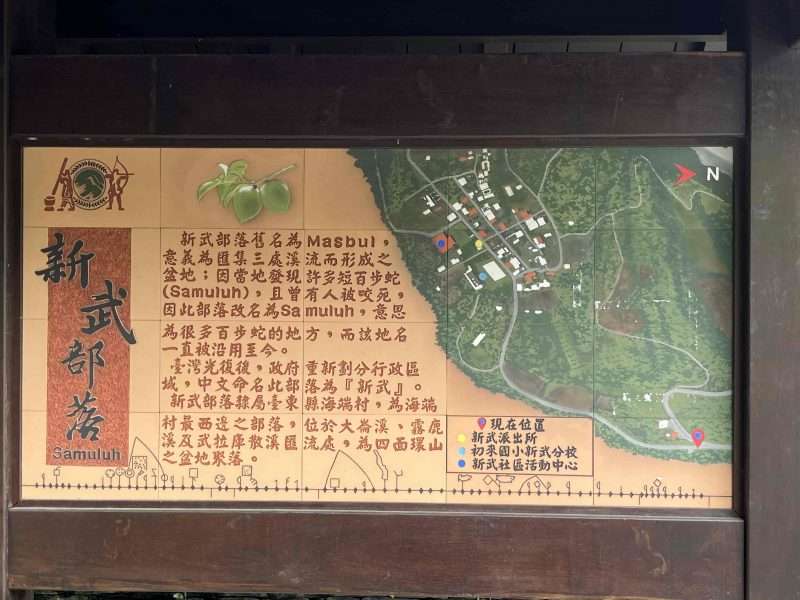 新武部落
Samuluh
新武部落舊名為Masbul，
意義為匯集三處溪流而形成之
盆地；因當地發現許多短百步蛇
(Samuluh)，且曾有人被咬死，
因此部落改名為Samuluh，意思
為很多百步蛇的地方，而該地名
一直被沿用至今。
臺灣光復後，政府重新劃分行政區
域，中文命名此部落為『新武』。
新武部落隸屬臺東縣海端村，為海端
村最西邊之部落，位於大崙溪、霧鹿
溪及武拉庫散溪匯流處，為四面環山
之盆地聚落。
N
現在位置
新武派出所
初來國小新武分校
新武社區活動中心